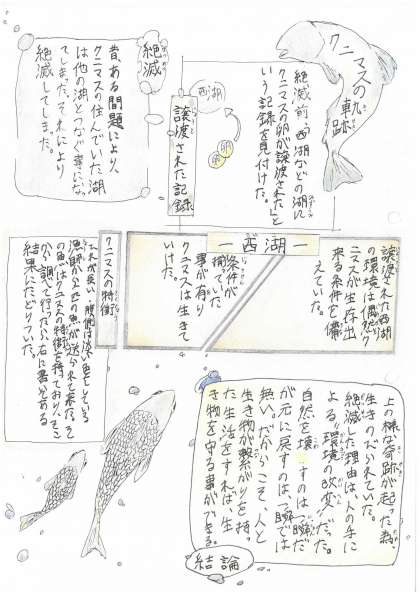 クニマスの軌跡
絶滅
昔、ある問題により、
クニマスの住んでいた湖
は他の湖とつなぐ事にな
てしまった。それにより
絶滅してしまった。
西湖
卵
卵
譲渡された記録
絶滅前、西湖などの湖に
クニマスの卵が譲渡されたと
いう記録を見付けた。
西湖
譲渡された西湖
の環境は偶然ク
ニマスが生存出
来る条件を備
えていた。
条件が
揃っていた
事が有り
クニマスは生きて
いけた。
クニマスの特徴
ひれが長い・腹側は淡い色をしている
漁師から匹の魚が送られて来た。そ
の魚はクニマスの特徴を持ており、そこ
から調べて行ったら右に書いてある
結果にたどりついた。
上の様な奇跡が起った為、
生きのびられていた。
絶滅した理由は、人の手に
よる“環境の改変”だった。
自然を壊すのは一瞬だ
が元に戻すのは一瞬では
無い。だからこそ、人と
生き物が繋がりを持っ
た生活をすれば、生
き物を守る事ができる。
結論